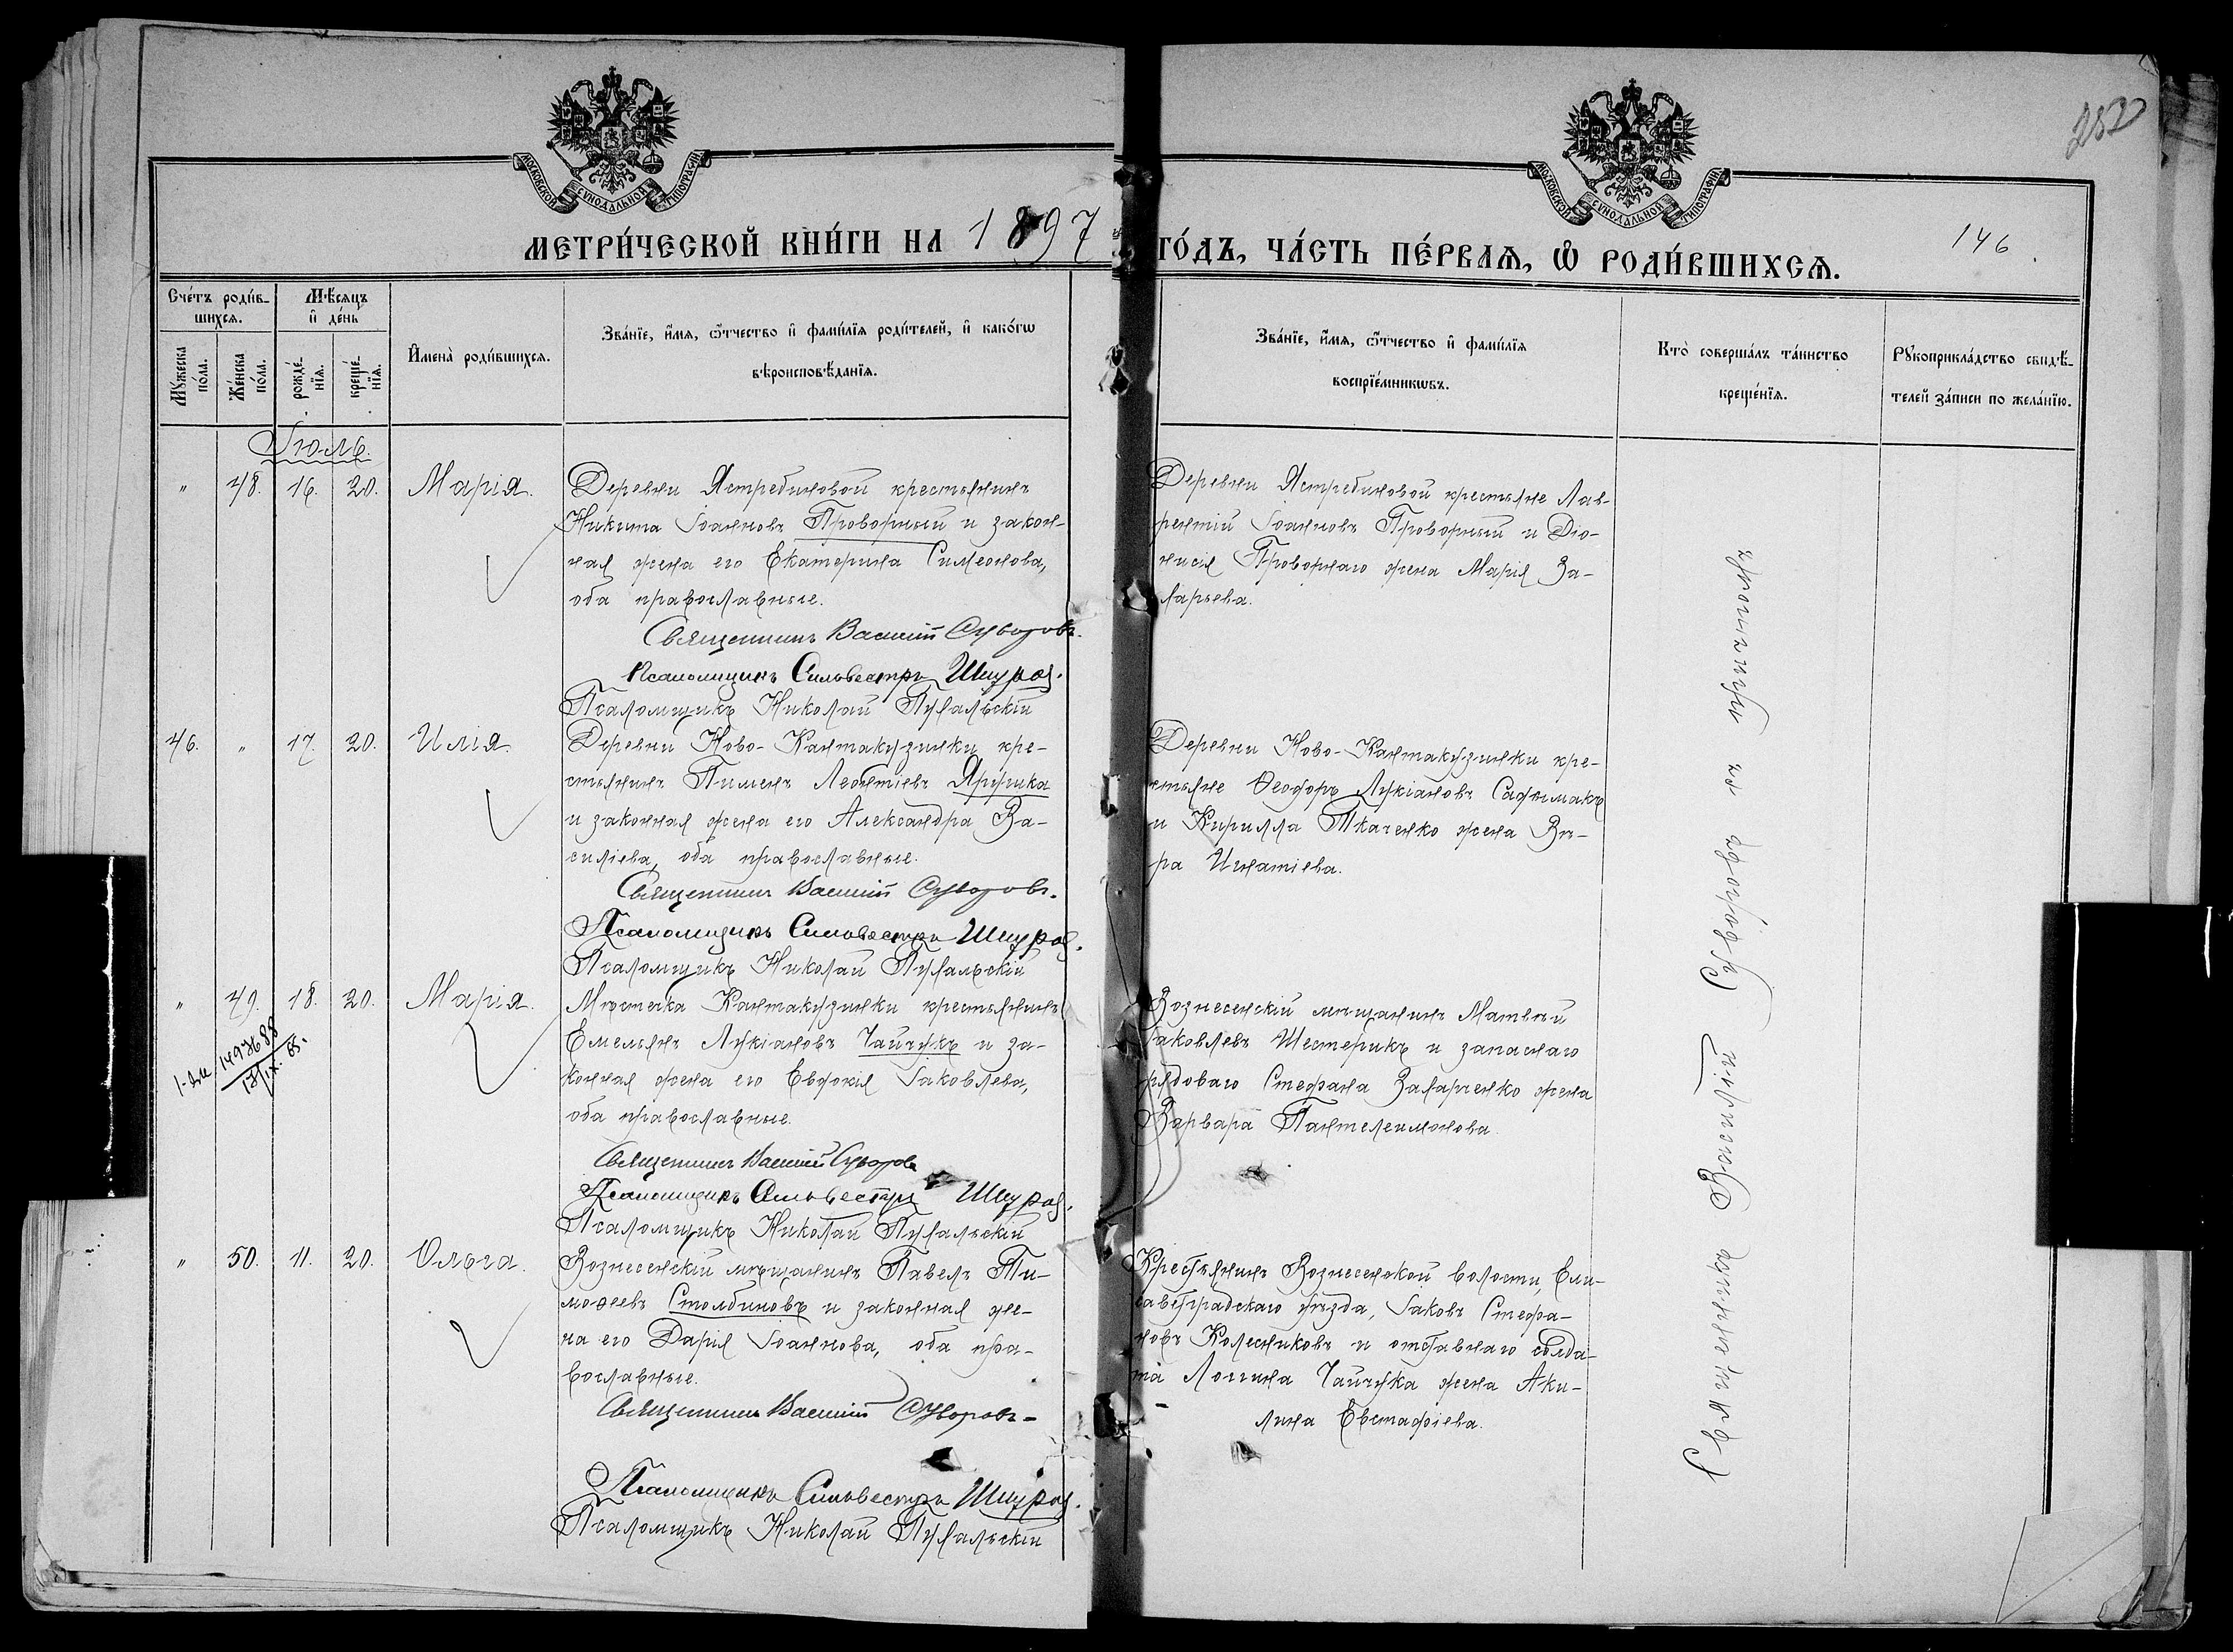 МОСКОВСКОЙ СУНОДАЛЬНОЙ ТИПОГРАФІИ
МОСКОВСКОЙ СУНОДАЛЬНОЙ ТИПОГРАФІИ
252
146
МЕТРИ́ЧЕСКОЙ КНИ́ГИ НА 1897 ГО́ДЪ, ЧА́СТЬ ПЕ́РВАѦ, Ѡ РОДИ́ВШИХСѦ.
Счетъ роди́в-
шихсѧ.
Мꙋ́жеска
по́ла.
Же́нска
по́ла.
Мѣ́сѧцъ
и де́нь
рожде́-
нїѧ.
креще́-
нїѧ.
Имена̀ роди́вшихсѧ.
Зва́нїе, и́мѧ, ѻ́тчество и фами́лїѧ роди́телей, и како́гѡ
вѣроисповѣ́данїѧ.
Зва́нїе, и́мѧ, ѻ́тчество и фами́лїѧ
воспрїе́мникѡвъ.
Кто̀ соверша́лъ та́инство
креще́нїѧ.
Рꙋкоприкла́дство свидѣ́-
телей за́писи по жела́нїю.
Іюль.
" 48. 16. 20. Марія.
Деревни Ястребиновой крестьянинъ
Никита Іоанновъ Проворный и закон-
ная жена его Екатерина Симеонова,
оба православные.
Священникъ Василій Суворовъ.
Псаломщикъ Сильвестръ
Псаломщикъ Николай
Деревни Ястребиновой крестьяне Лав-
рентій Іоанновъ Проворный и Діо-
нисія Проворнаго жена Марія За-
харьева.
46. " 17. 20. Илія.
Деревни Ново-Кантакузинки кре-
стьянинъ Пименъ Леонтіевъ
и законная жена его Александра Ва-
силіева, оба православные.
Священникъ Василій Суворовъ.
Псаломщикъ Сильвестръ
Псаломщикъ Николай
Деревни Ново-Кантакузинки кре-
стьяне Ѳеодоръ Лукіановъ
и Кирилла Ткаченко жена Вѣ-
ра Игнатіева.
" 49. 18. 20. Марія.
1497688
Мѣстечка Кантакузинки крестьянинъ
Емельянъ Лукіановъ Чайчукъ и за-
конная жена его Евдокія Іаковлева,
оба православные.
Священникъ Василій Суворовъ
Псаломщикъ Сильвестръ
Псаломщикъ Николай
Вознесенскій мѣщанинъ Матвѣй
Іаковлевъ Шестерикъ и запаснаго
рядоваго Стефана Захарченко жена
Варвара Пантелеимонова.
" 50. 11. 20. Ольга.
Вознесенскій мѣщанинъ Павелъ Ти-
моѳеевъ Столбиновъ и законная же-
на его Дарія Іоаннова, оба пра-
вославные.
Священникъ Василій Суворовъ
Псаломщикъ Сильвестръ
Псаломщикъ Николай
Крестьянинъ Вознесенской волости, Ели-
саветградскаго уѣзда, Іаковъ Стефа-
новъ Колесниковъ и отставнаго солда-
та Логгина Чайчука жена Аки-
лина Евстафіева.
Священникъ Василій Суворовъ съ